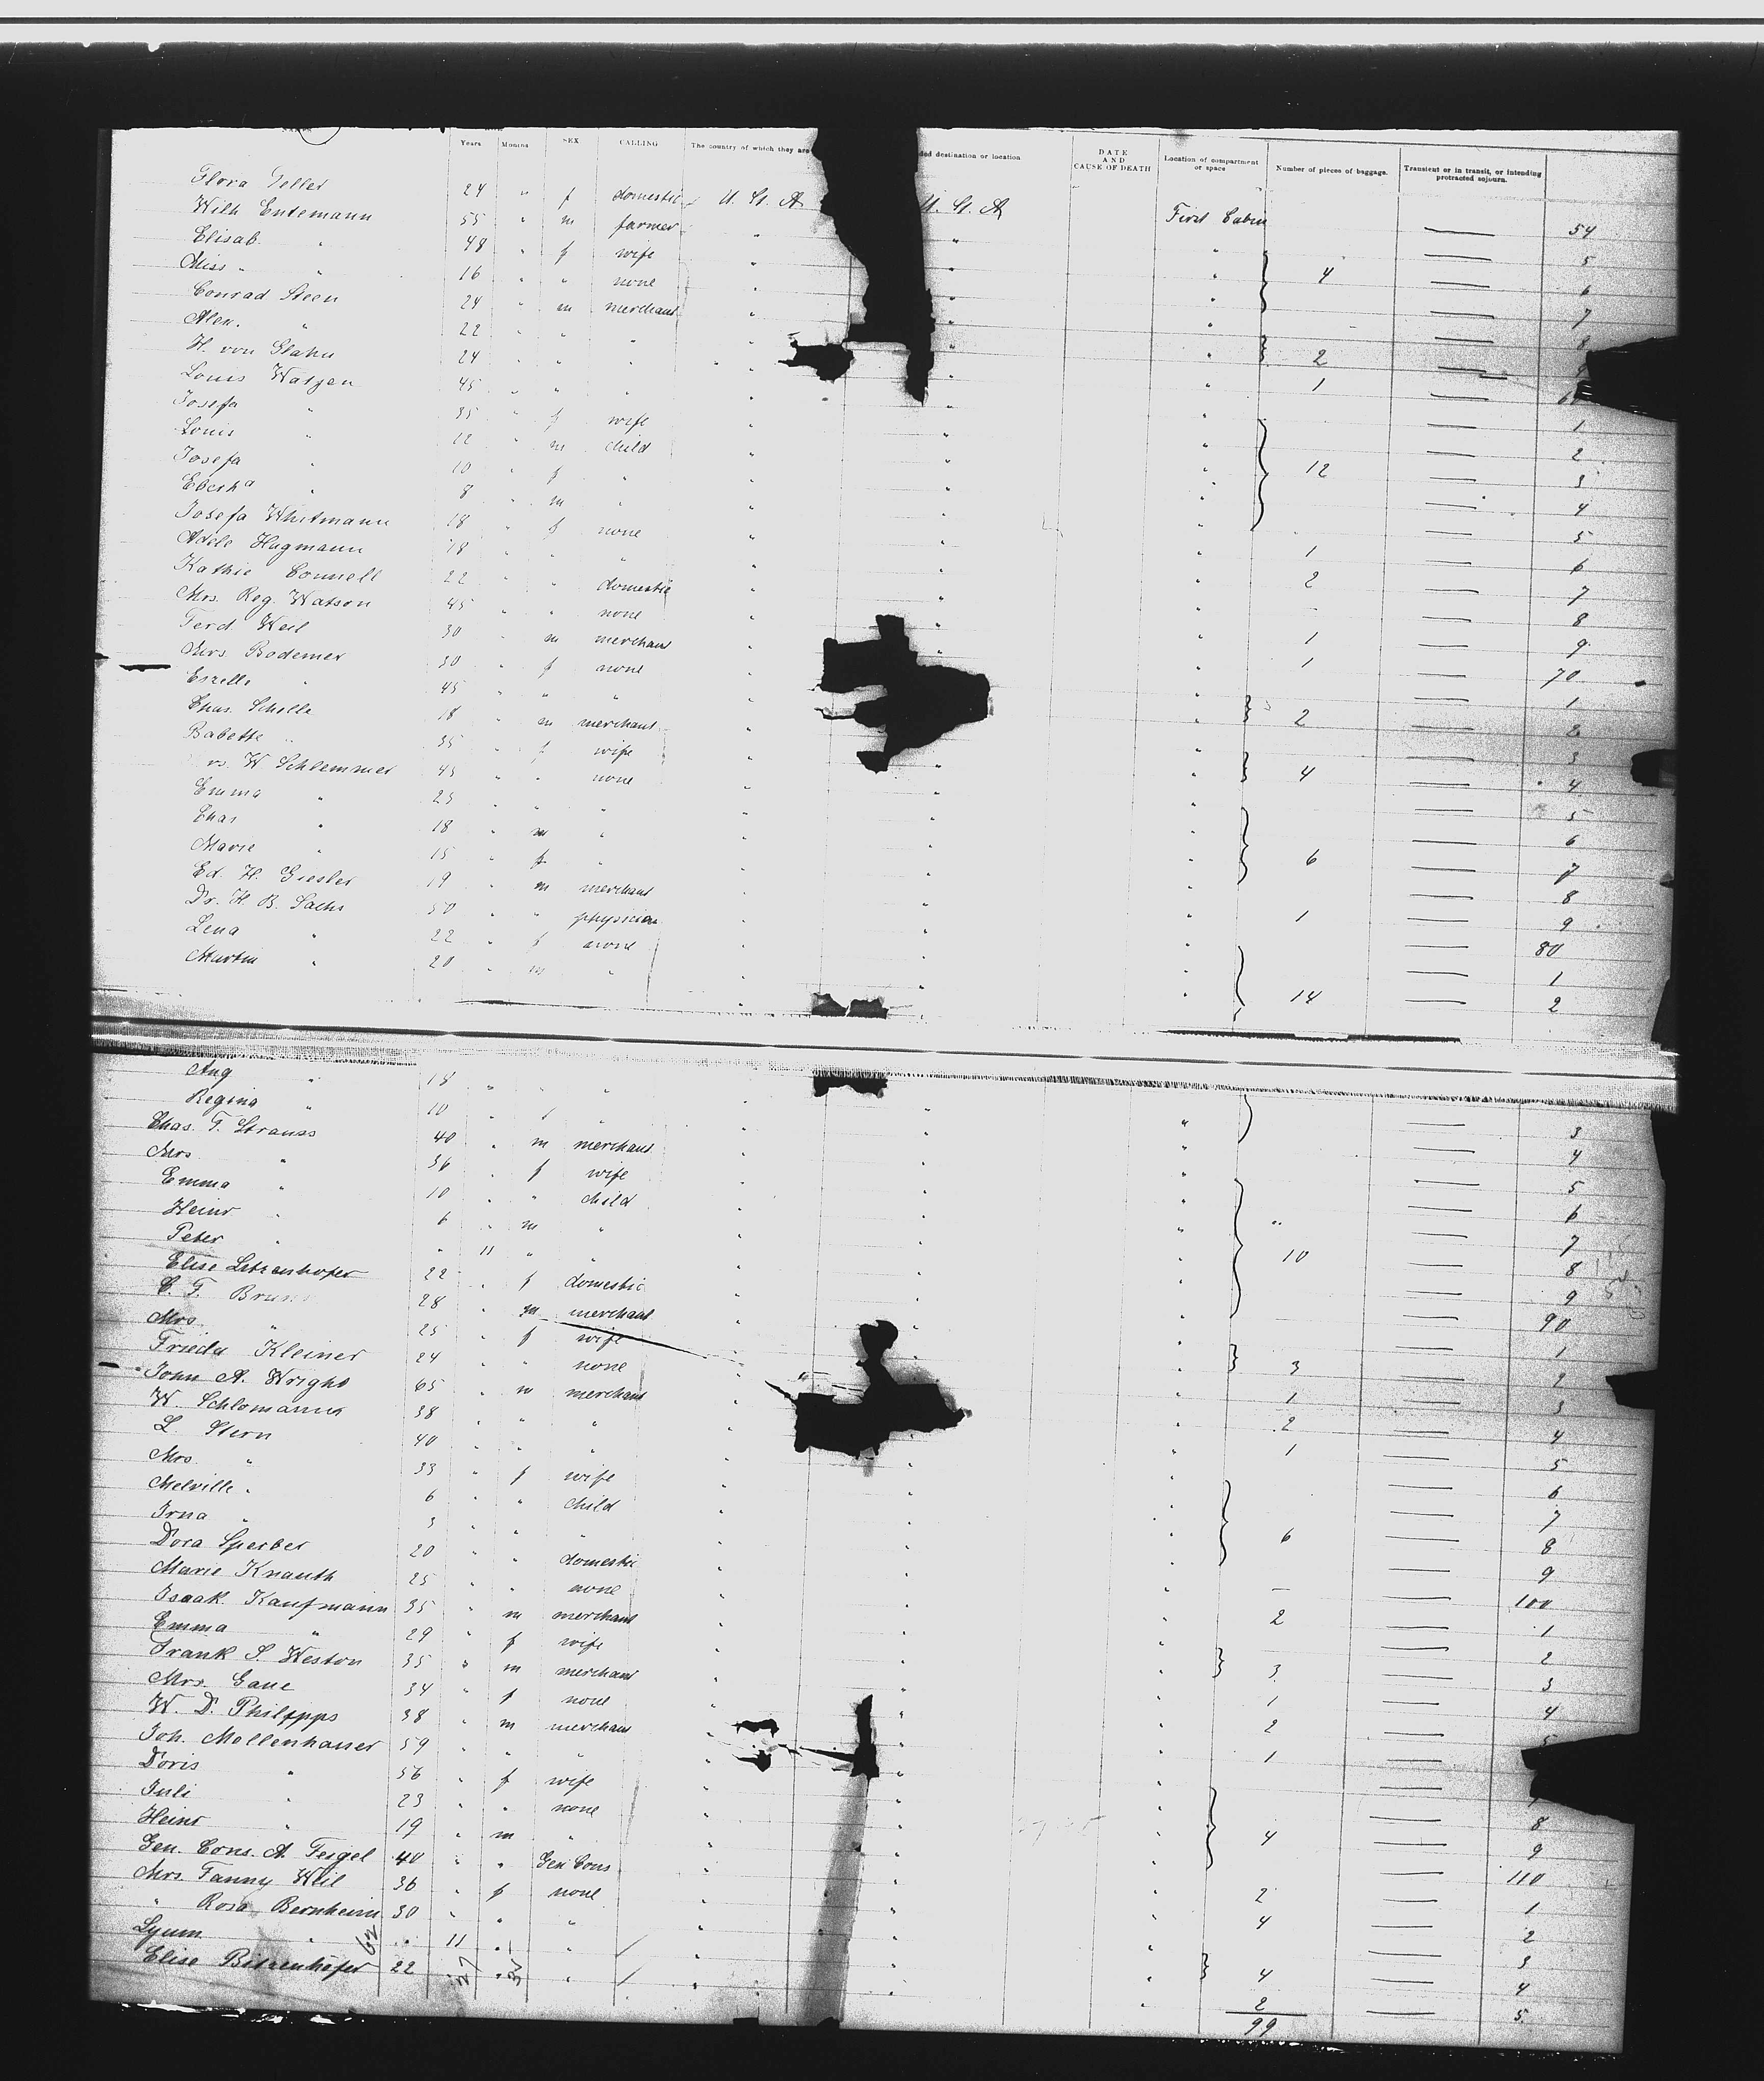 Years Months SEX CALLING The country of which they are ded destination or location DATE AND CAUSE OF DEATH Location of compartment or space Number of pieces of baggage. Transient or in transit, or intending protracted sojourn.
Flora 24 " f domestic U. St. A U. St. A First Cabin 54
Wilh Entemann 55 " m farmer " " " 5
Elisab. " 48 " f wife " " " 4 6
Miss " " 16 " " none " " " 7
Conrad Steen 24 " m merchant " " " 8
Alex. " 22 " " " " " " 2
H. von Glahn 24 " " " " " " 1
Louis Watjen 45 " " " " " " 1
Josefa " 35 " f wife " " " 2
Louis " 12 " m child " " " 12 3
Josefa " 10 " f " " " " 4
" 8 " m " " " " 5
Josefa Whitmann 18 " f none " " " 1 6
Adele Hagmann 18 " " " " " " 2 7
Kathie Connell 22 " " domestic " " " - 8
Mrs. Reg. Watson 45 " " none " " " 1 9
Ferd. Weil 30 " m merchant " " 1 70
Mrs. Bodemer 50 " f none " " 1
" 45 " " " " " 2 2
Chas. Schelle 18 " m merchant " " 3
Babette " 35 " f wife " " 4 4
rs. W Schlemmer 45 " " none " " " 5
Emma " 23 " " " " " " 6
Chas " 18 " m " " " " 6 7
Marie " 15 " f " " " " 8
Ed. H. Giesler 19 " m merchant " " " 1 9
Dr. H. B. Sachs 50 " " physician " " " 80
Lena " 22 " f none " " " 1
Martin " 20 " m " " " " 14 2
Aug " 18 " " " " " " 3
Regina " 10 " f " " " " 4
Chas. T. Strauss 40 " m merchant " " " 5
Mrs " 36 " f wife " " " 6
Emma " 10 " " child " " " " 7
Heinr. " 6 " m " " " " 10 8
Peter " " 11 " " " " " 9
Elise 22 " f domestic " " " 90
C. F. Bruns 28 " m merchant " " " 1
Mrs. " 25 " f wife " " 3 2
Frieda Kleiner 24 " " none " " 1 3
John A. Wright 65 " m merchant " " 2 4
W. Schlomann 38 " " " " " 1 5
L. Stern 40 " " " " " " 6
Mrs. " 33 " f wife " " " 7
Melville " 6 " " child " " " 6 8
Irna " 3 " " " " " " 9
Dora Sperber 20 " " domestic " " " - 100
Marie Knauth 25 " " none " " " 2 1
Isaak Kaufmann 35 " m merchant " " " 2
Emma " 29 " f wife " " " 3 3
Frank S. Weston 35 " m merchant " " " 1 4
Mrs. Gane 34 " f none " " " 2
W. D. Philipps 38 " m merchant " " " 1
Joh. Mollenhauer 59 " " " " " "
Doris " 56 " f wife " " " 8
Juli " 23 " " none " " " 4 9
Heinr " 19 " m " " " " 110
Gen. Cons. A. Feigel 40 " " Gen Cons " " " 2 1
Mrs. Fanny Weil 36 " f none " " " 4 2
" Rosa Bernheim 30 " " " " " " 3
" " 11 " " " " " 4 4
Elise 22 " " " " " " 2 5
99